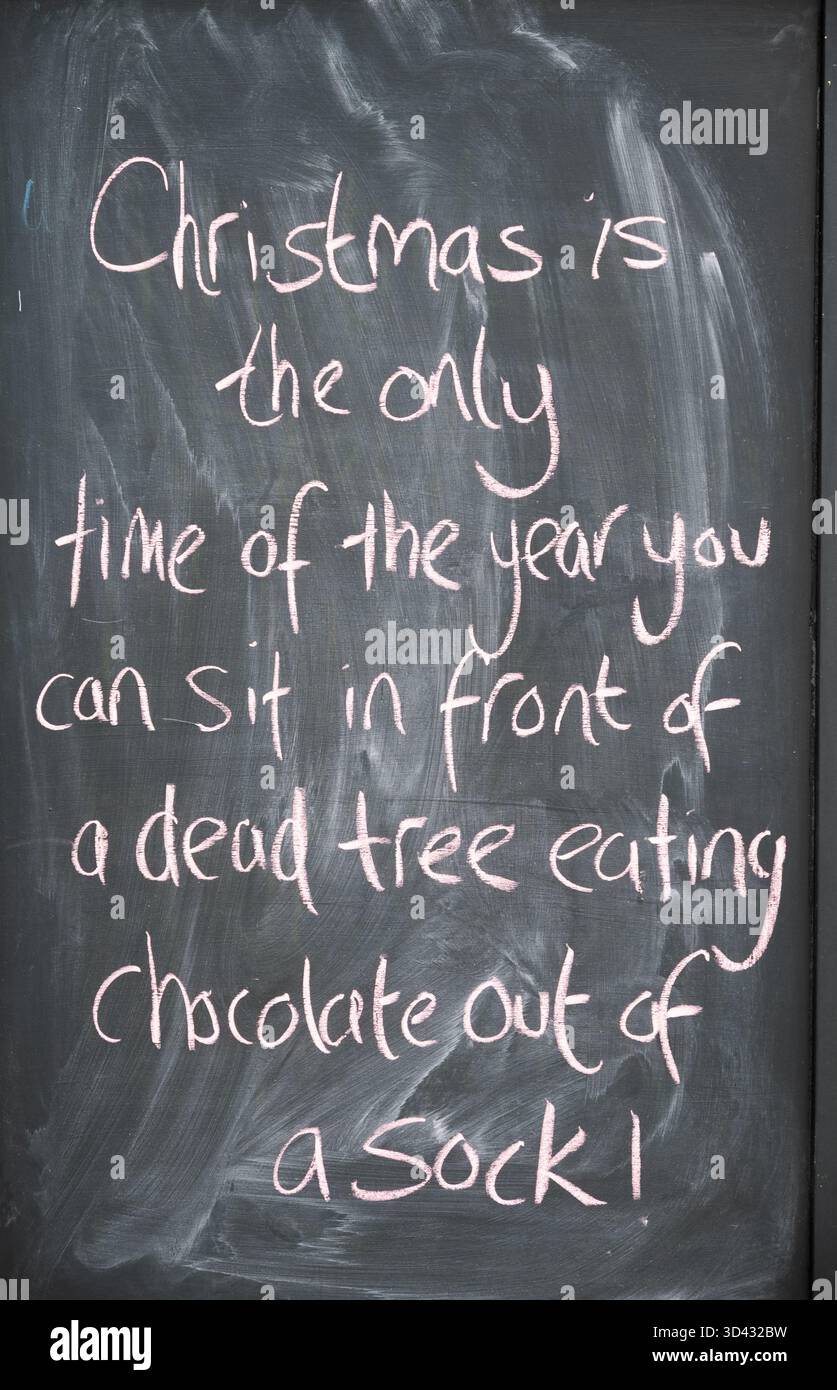 Christmas is
the only
time of the year you
can sit in front of
a dead tree eating
chocolate out of
a sock!
alamy
Image ID: 3D432BW
www.alamy.com